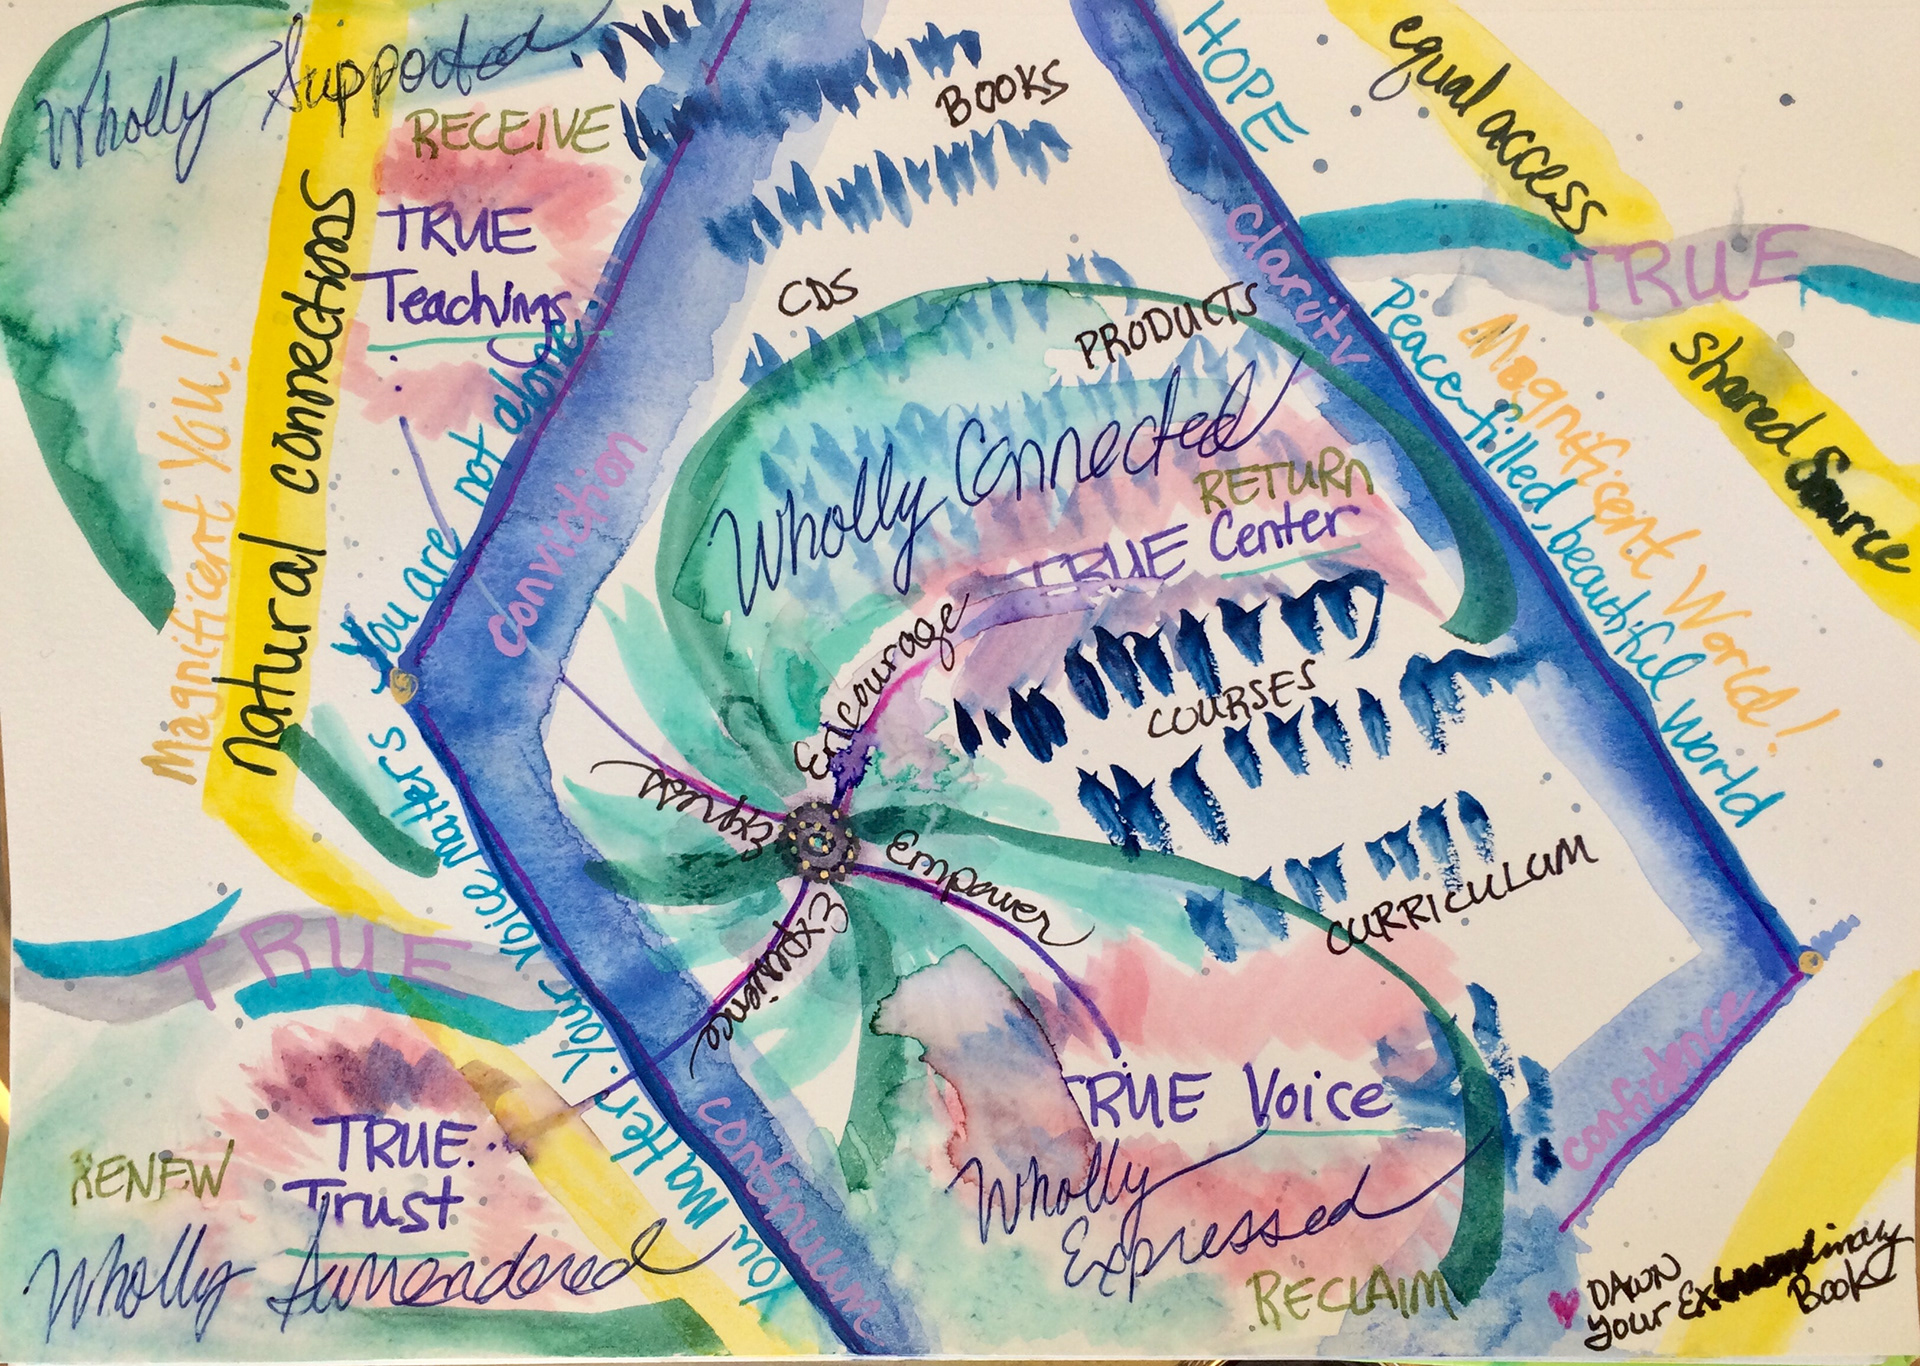 Wholly Supported
RECEIVE
TRUE
Teachings
natural connections
Magnificent You!
You are not alone
conviction
BOOKS
CDS
PRODUCTS
HOPE
clarity
equal access
TRUE
shared Source
Peace-filled, beautiful world
Magnificent World!
Wholly Connected
RETURN
TRUE Center
Encourage
Express
Empower
Experience
COURSES
CURRICULUM
TRUE
You matter! Your voice matters
continuum
confidence
TRUE
Trust
RENEW
Wholly Surrendered
TRUE Voice
Wholly
Expressed
RECLAIM
DAWN
Your Extraordinary
Book